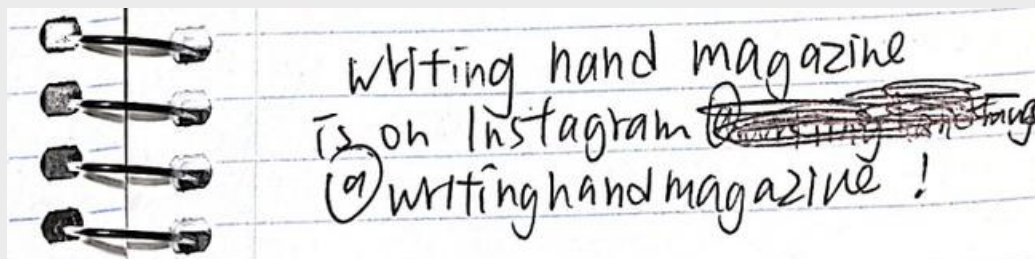 writing hand magazine
is on Instagram
@writinghandmagazine !